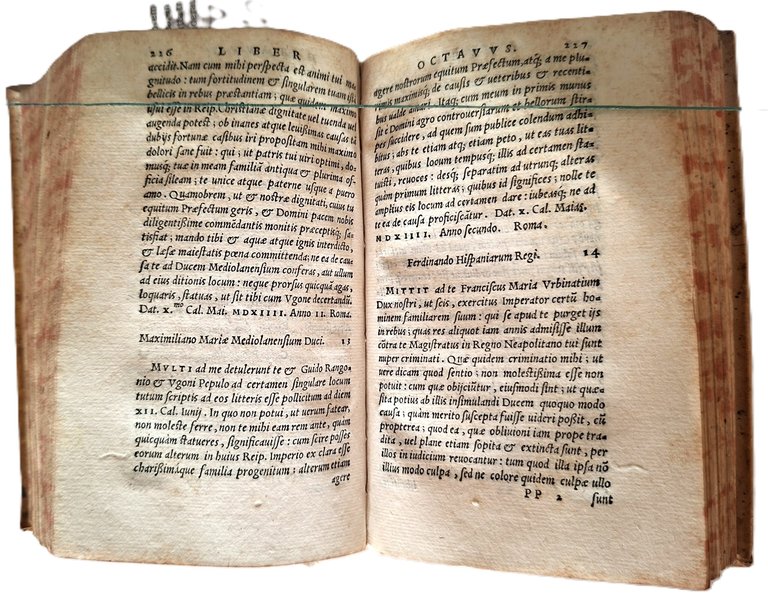 226 LIBER
accidit. Nam cum mihi perspecta est animi tui ma-
gnitudo : tum fortitudinem & singularem tuam isti
bellicis in rebus præstantiam ; quæ quidem maximo
usui esse in Reip. Christianæ dignitate uel tuenda uel
augenda potest ; ob inanes atque leuißimas causas tã
dubijs fortunæ casibus iri propositam mihi maximo
dolori sane fuit : qui ; ut patris tui uiri optimi, do-
musq; tuæ in meam familiã antiqua & plurima of-
ficia sileam ; te unice atque paterne usque a puero
amo. Quamobrem, ut & nostræ dignitati, cuius tu
equitum Præfectum geris, & Domini pacem nobis
diligentißime commẽdantis monitis præceptisq; sa-
tisfiat ; mando tibi & aquæ atque ignis interdicto,
& læsæ maiestatis pœna committenda; ne ea de cau-
sa te ad Ducem Mediolanensium conferas, aut ullum
ad eius ditionis locum : neque prorsus quicquã agas,
loquaris, statuas, ut sit tibi cum Vgone decertandũ.
Dat. x.mo Cal. Mai. MDXIIII. Anno II. Roma.
Maximiliano Mariæ Mediolanensium Duci. 13
MVLTI ad me detulerunt te & Guido Rango-
nio & Vgoni Pepulo ad certamen singulare locum
tutum scriptis ad eos litteris esse pollicitum ad diem
XII. Cal. Iunij. In quo non potui, ut uerum fatear,
non moleste ferre, non te mihi eam rem ante, quàm
quicquàm statueres, significauisse : cum scire posses
eorum alterum in huius Reip. Imperio ex clara esse
charißimaque familia progenitum ; alterum etiam
agere
OCTAVVS. 227
agere nostrorum equitum Præfectum, atq; a me plu-
rimis maximisq; de causis & ueteribus & recenti-
bus ualde amari. Itaq; cum meum in primis munus
sit e Domini agro controuersiarum et bellorum stir-
pes succidere, ad quem sum publice colendum adhi-
bitus ; abs te etiam atq; etiam peto, ut eas tuas lit-
teras, quibus locum tempusq; illis ad certamen sta-
tuisti, reuoces : desq; separatim ad utrunq; alteras
quàm primum litteras ; quibus id significes ; nolle te
amplius eis locum ad certamen dare : iubeasq; ne ad
te ea de causa proficiscãtur. Dat. x. Cal. Maias.
MDXIIII. Anno secundo. Roma.
Ferdinando Hispaniarum Regi. 14
MITTIT ad te Franciscus Maria Vrbinatium
Dux nostri, ut scis, exercitus Imperator certũ ho-
minem familiarem suum : qui se apud te purget ijs
in rebus ; quas res aliquot iam annis admisisse illum
cõtra te Magistratus in Regno Neapolitano tui sunt
nuper criminati. Quæ quidem criminatio mihi ; ut
uere dicam quod sentio ; non molestißima esse non
potuit : cum quæ obijciũtur, eiusmodi sint ; ut quæ-
sita potius ab illis insimulandi Ducem quoquo modo
causa ; quàm merito suscepta fuisse uideri poßit, cũ
propterea ; quod ea, quæ obliuioni iam prope tra-
dita, uel plane etiam sopita & extincta sunt, per
illos in iudicium reuocantur : tum quod illa ipsa nõ
illius modo culpa, sed ne colore quidem culpæ ullo
PP 2 sunt